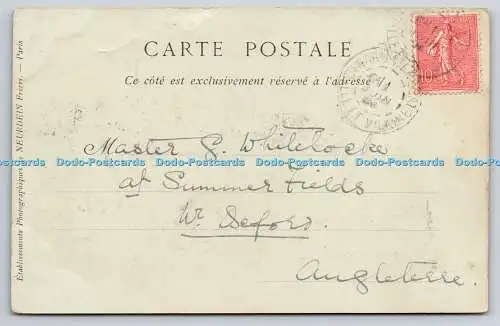 CARTE POSTALE
Ce côté est exclusivement réservé à l'adresse
Etablissements Photographiques de NEURDEIN Frères. — Paris
10
Master G. Whitelocke
Dodo-Postcards Dodo-Postcards Dodo-Postcards Dodo-Postcards Dodo-Postcards
at Summer Fields
Nr. Seford.
Angleterre.